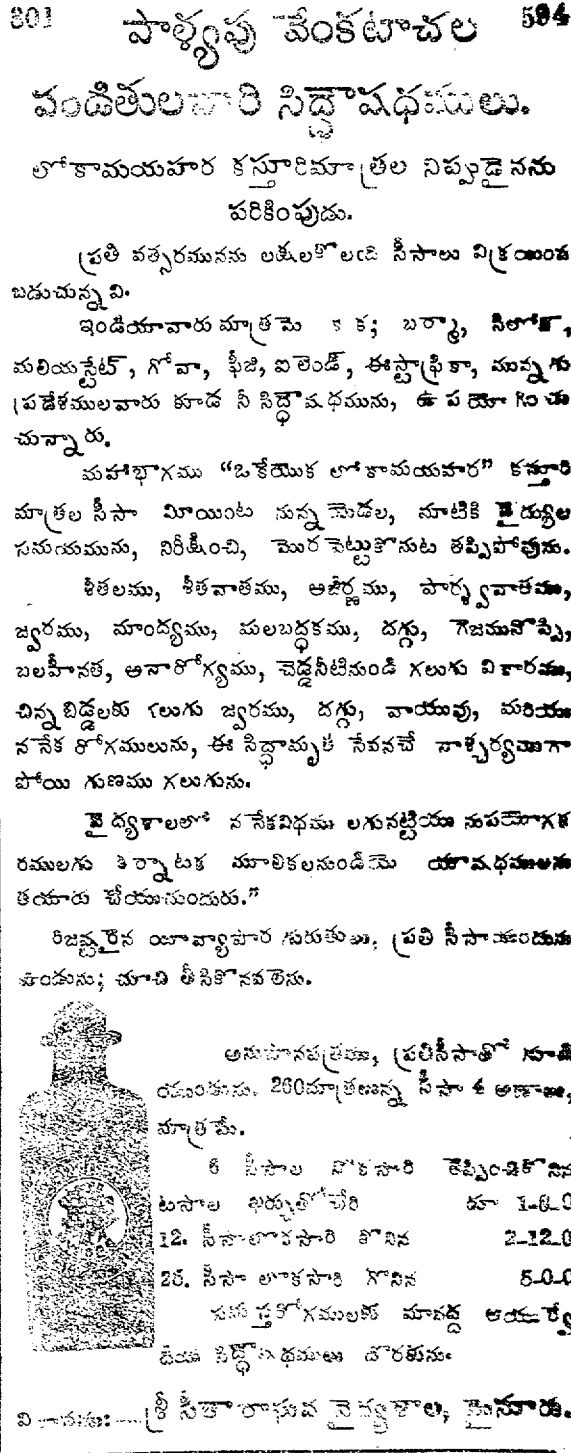 801 594
పాళ్యపు వేంకటాచల
పండితులవారి సిద్ధౌషధములు.
లోకామయహర కస్తూరిమాత్రల నిప్పుడైనను
పరికింపుడు.
ప్రతి వత్సరమునను లక్షలకొలది సీసాలు విక్రయింప
బడుచున్నవి.
ఇండియావారు మాత్రమె కాక; బర్మా, సిలోన్,
మలియస్టేట్, గోవా, ఫీజి, ఐలెండ్, ఈస్టాఫ్రికా, మున్నగు
ప్రదేశములవారు కూడ నీ సిద్ధౌషధమును, ఉపయోగించు
చున్నారు.
మహాభాగము “ఒకేయొక లోకామయహర” కస్తూరి
మాత్రల సీసా మీయింట నున్న యెడల, మాటికి వైద్యుల
సమయమును, నిరీక్షించి, మొరపెట్టుకొనుట తప్పిపోవును.
శీతలము, శీతవాతము, అజీర్ణము, పార్శ్వవాతము,
జ్వరము, మాంద్యము, మలబద్ధకము, దగ్గు, గొజమునొప్పి,
బలహీనత, అనారోగ్యము, చెడ్డనీటినుండి గలుగు వికారము,
చిన్నబిడ్డలకు గలుగు జ్వరము, దగ్గు, వాయువు, మరియు
ననేక రోగములును, ఈ సిద్ధామృత సేవనచే నాశ్చర్యముగా
పోయి గుణము గలుగును.
వైద్యశాలలో ననేకవిధము లగునట్టియు నుపయోగక
రములగు కర్నాటక మూలికలనుండియె యౌషధములను
తయారు చేయుచుందురు.”
రిజిష్టరైన యీవ్యాపార గురుతులు, ప్రతి సీసాకుండును
ఉండును; చూచి తీసికొనవలెను.
అనుపానపత్రము, ప్రతిసీసాతో కూడి
యుండును. 260మాత్రలున్న సీసా 4 అణాలు,
మాత్రమే.
6 సీసాల నొకసారి తెప్పించికొనిన
టపాల ఖర్చుతోచేరి రూ 1-6-0
12. సీసాలొకసారి కొనిన 2-12-0
25. సీసా లొకసారి గొనిన 5-0-0
సమస్తరోగములకు మావద్ద ఆయుర్వే
దీయ సిద్ధౌషధములు దొరకును.
శ్రీ సీతారాఘవ వైద్యశాల, మైసూరు.